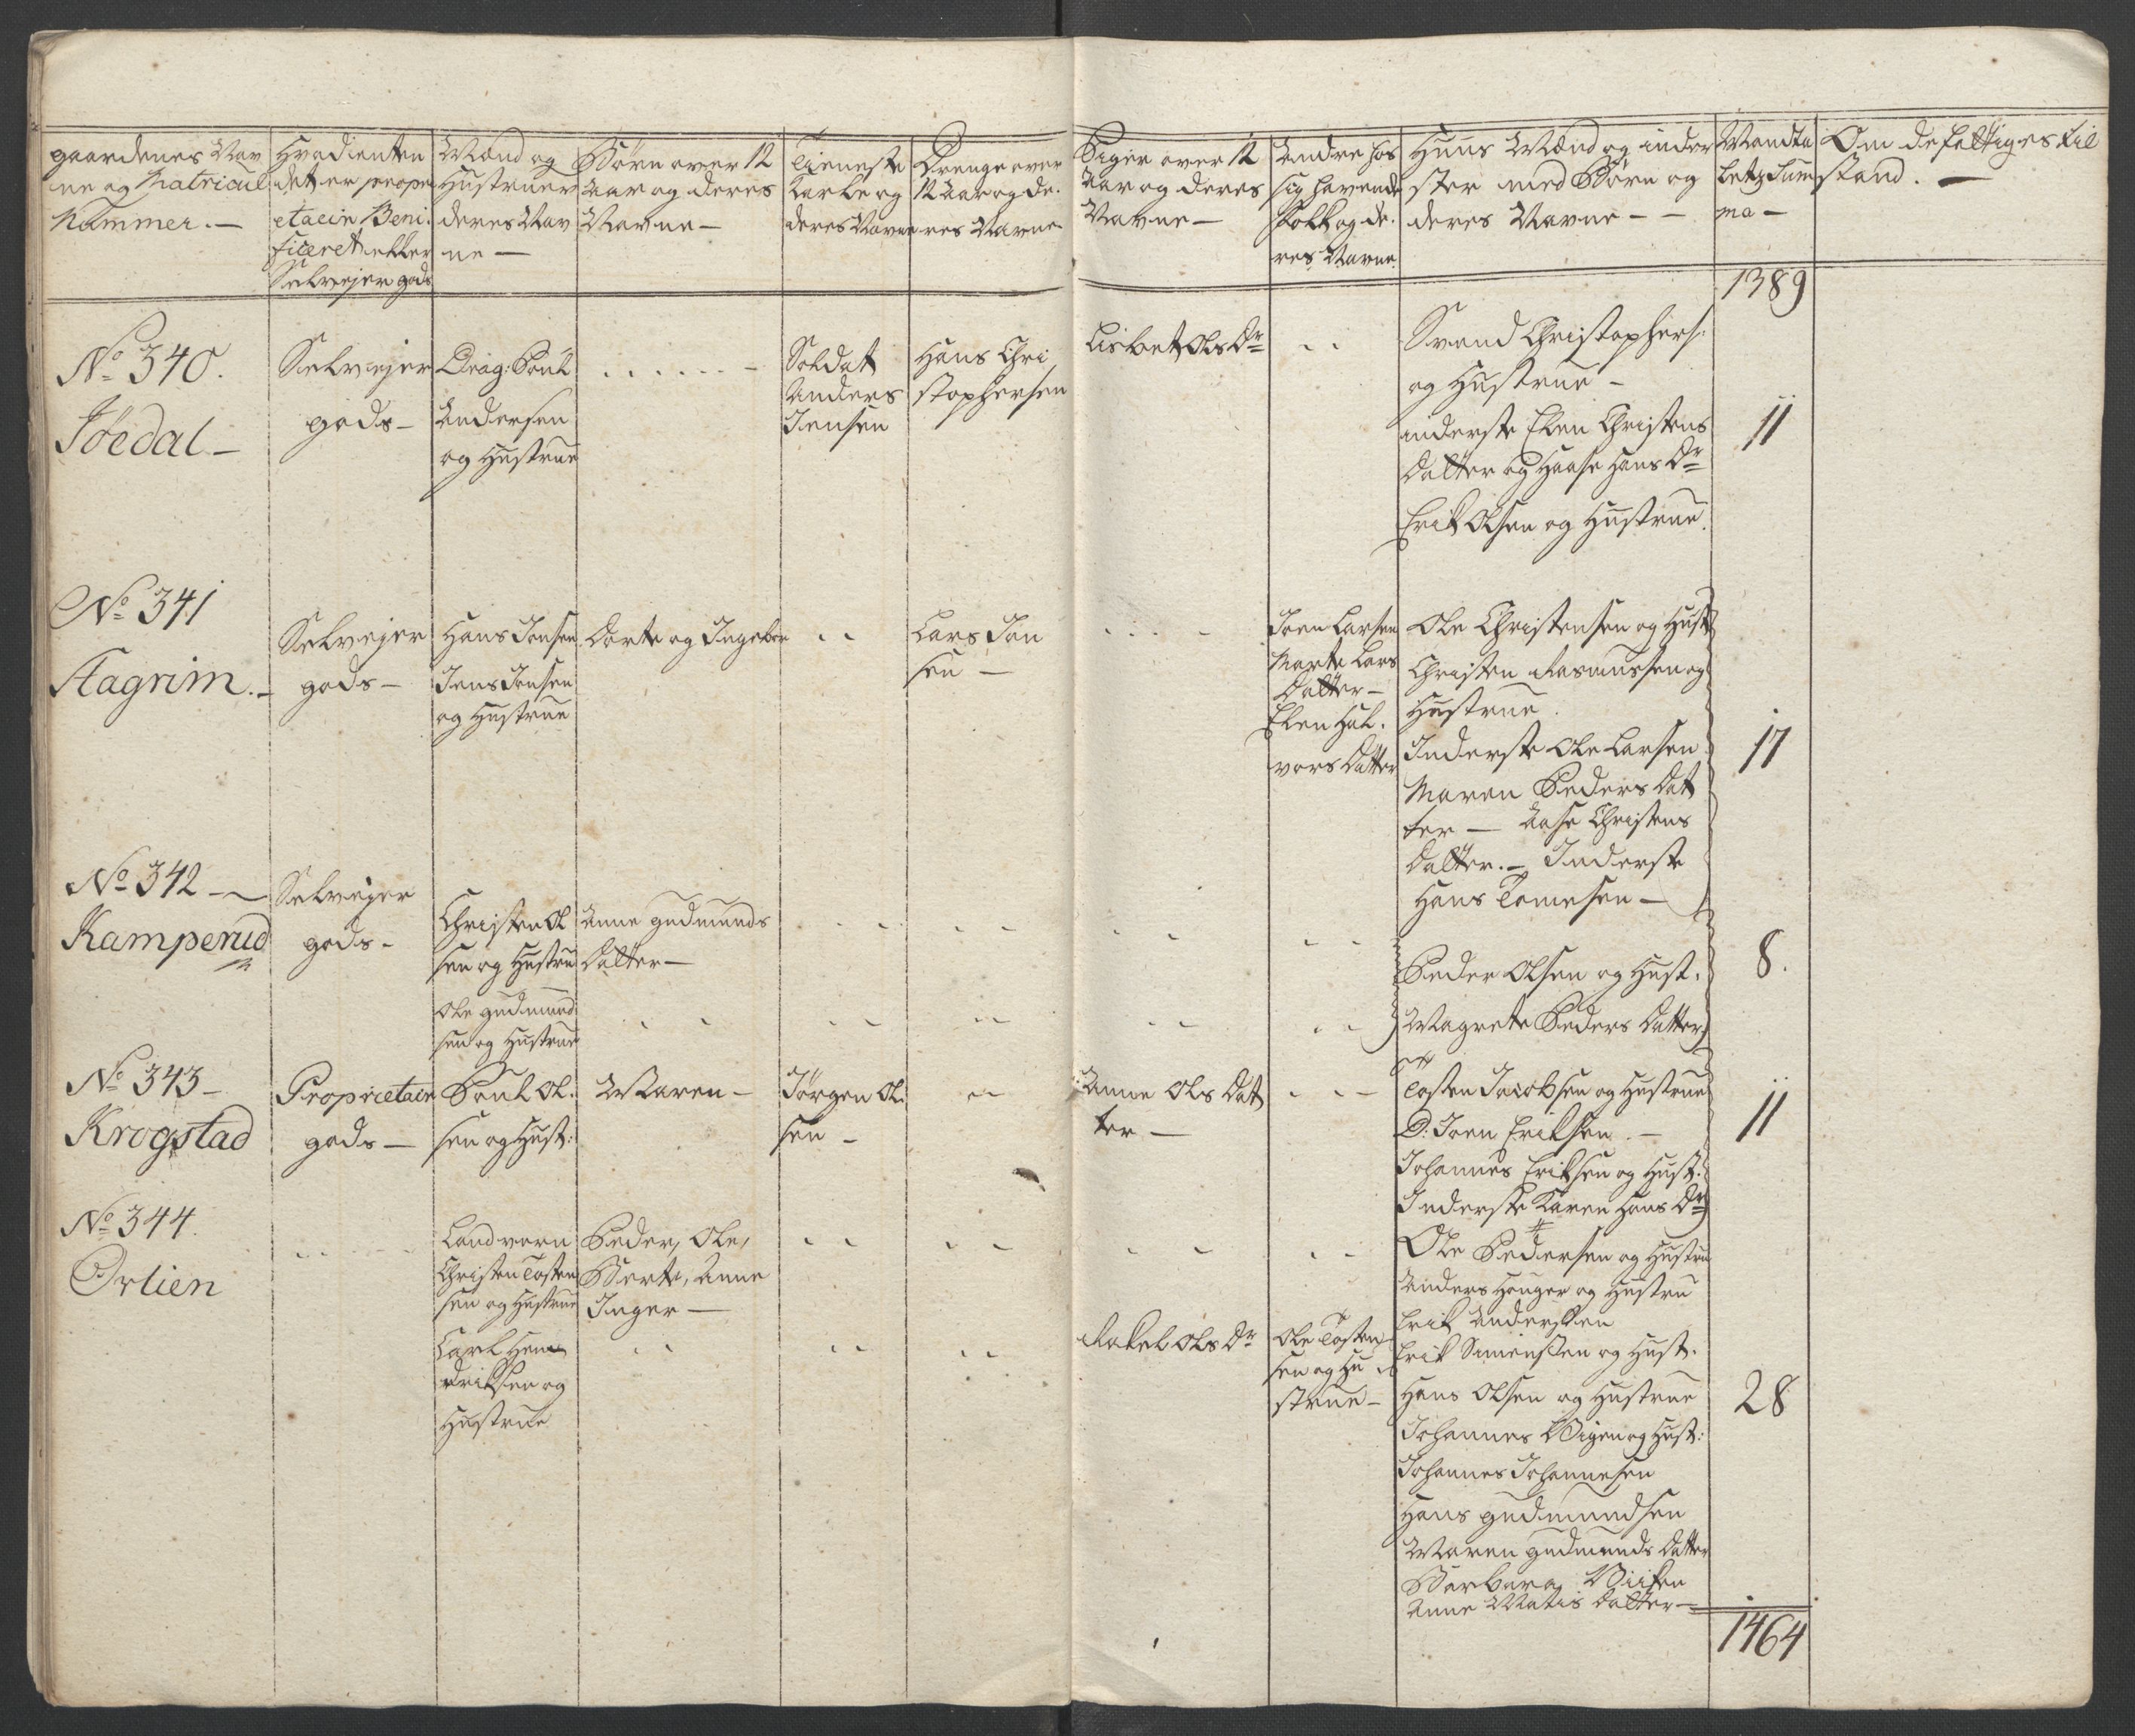 gaardenes Nav
ne og Matricul
Nummer. —
Hvad ienten
det er propri
etair, Beni-
ficeret eller
Selvejer gods
Mænd og
Hustruer
deres Nav
ne —
Børn over 12
Aar og deres
Navne —
Tieneste
Karle og
deres Navne
Drenge over
12 Aar og de-
res Navne
Piger over 12
Aar og deres
Navne —
Andre hos
sig havende
Folk og de-
res Navne
Huus Mænd og inder
ster med Børn og
deres Navne — —
Mandta
lets Sum
ma —
Om de fattiges til
stand. —
1389
No 340.
Jøedal —
Selvejer
gods —
Drag: Poul
Andersen
og Hustrue
Soldat
Anders
Jensen
Hans Chri
stophersen
Lisbet Ols Dr
Svend Christophers:
og Hustrue —
inderste Elen Christens
Datter og Haase Hans Dr
Erik Olsen og Hustrue.
11
No 341
Hagrim. —
Selvejer
gods —
Hans Jensen
Jens Jensen
og Hustrue
Dorte og Ingebor
Lars Jon
sen —
Joen Larsen
Marte Lars
Datter —
Elen Hal-
vors Datter
Ole Christensen og Hust
Christen Rasmussen og
Hustrue.
Inderste Ole Larsen
Maren Peders Dat
ter — Aase Christens
Datter. — Inderste
Hans Tomesen —
17
No 342 —
Kamperud
Selvejer
gods —
Christen Ol
sen og Hustru
Ole gudmund
sen og Hustrue
Anne gudmunds
Datter —
Peder Olsen og Hust.
Magrete Peders Datter
8.
No 343 —
Krogstad
Proprietair
gods —
Poul Ol.
sen og Hust:
Maren —
Jørgen Ol.
sen —
Anne Ols Dat
ter —
Tosten Jacobsen og Hustrue
D: Joen Eriksen. —
Johannes Eriksen og Hust.
Inderste Karen Hans Dr
11
No 344.
Orlien
Landvern
Christen Tosten
sen og Hustrue
Carl Hen
driksen og
Hustrue
Peder, Ole,
Berte, Anne
Inger —
Rakel Ols Dr
Ole Tosten
sen og Hu
strue —
Ole Pedersen og Hustru
Anders Hauger og Hustru
Erik Anderssen
Erik Simenssen og Hust.
Hans Olsen og Hustrue
Johannes Vigen og Hust:
Johannes Johannesen
Hans gudmundsen
Maren gudmunds Datter
Barbara Viiken
Anne Matis Datter —
28
1464